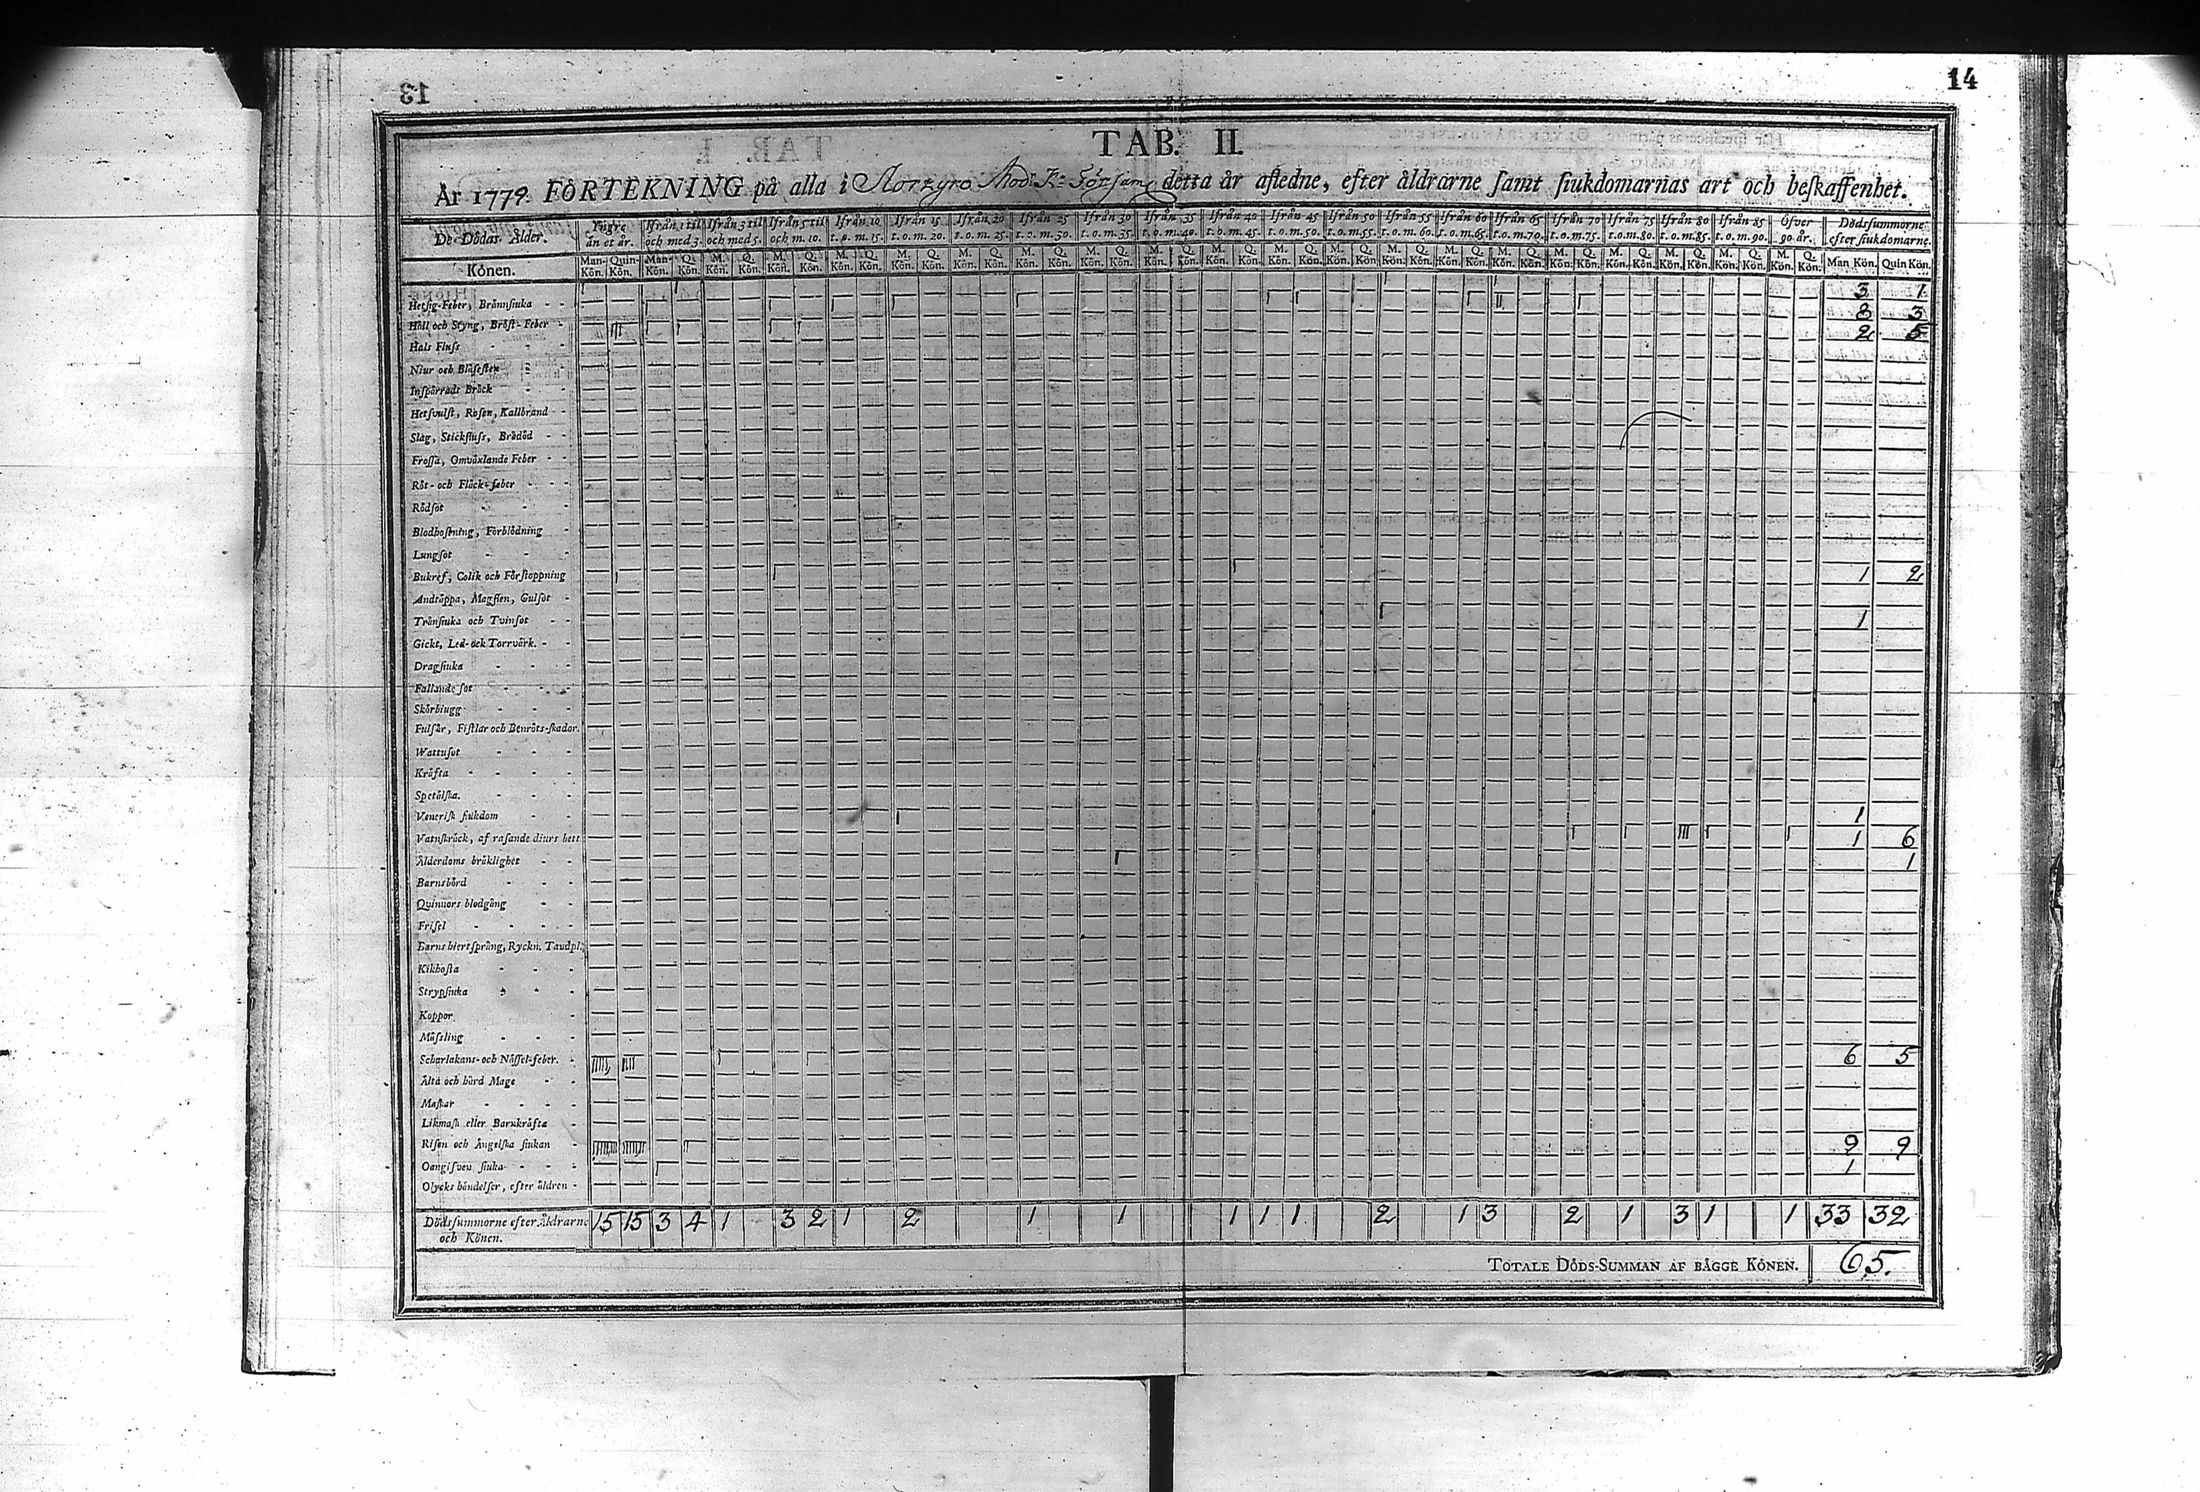 13
14
TAB. II.
År 1779. FÖRTEKNING på alla i Storkyro Mod. K: Förſaml detta år afledne, efter åldrarne ſamt ſiukdomarnas art och beſkaffenhet.
De Dödas Ålder. Yngre än et år. Ifrån 1 til och med 3. Ifrån 3 til och med 5. Ifrån 5 til och m. 10. Ifrån 10 t. o. m. 15. Ifrån 15 t. o. m. 20. Ifrån 20 t. o. m. 25. Ifrån 25 t. o. m. 30. Ifrån 30 t. o. m. 35. Ifrån 35 t. o. m. 40. Ifrån 40 t. o. m. 45. Ifrån 45 t. o. m. 50. Ifrån 50 t. o. m. 55. Ifrån 55 t. o. m. 60. Ifrån 60 t. o. m. 65. Ifrån 65 t. o. m. 70. Ifrån 70 t. o. m. 75. Ifrån 75 t. o. m. 80. Ifrån 80 t. o. m. 85. Ifrån 85 t. o. m. 90. Öfver 90 år. Dödsſummorne efter ſiukdomarne.
Könen. Man-Kön. Quin-Kön. Man Kön. Q. Kön. M. Kön. Q. Kön. M. Kön. Q. Kön. M. Kön. Q. Kön. M. Kön. Q. Kön. M. Kön. Q. Kön. M. Kön. Q. Kön. M. Kön. Q. Kön. M. Kön. Q. Kön. M. Kön. Q. Kön. M. Kön. Q. Kön. M. Kön. Q. Kön. M. Kön. Q. Kön. M. Kön. Q. Kön. M. Kön. Q. Kön. M. Kön. Q. Kön. M. Kön. Q. Kön. M. Kön. Q. Kön. M. Kön. Q. Kön. M. Kön. Q. Kön. Man Kön. Quin Kön.
3 1
Hetſig-Feber, Brännſiuka - - 8 3
Håll och Styng, Bröſt-Feber - 2 5
Hals Fluſs - - -
Niur och Blåſeſten - -
Inſpärradt Bråck -
Hetſvulſt, Roſen, Kallbrand - -
Slag, Stickfluſs, Brådöd - -
Froſſa, Omväxlande Feber - -
Röt- och Fläck-feber - - -
Rödſot - - -
Blodhoſtning, Förblödning -
Lungſot - - -
Bukref, Colik och Förſtoppning 1 2
Andtäppa, Magſien, Gulſot -
Trånſiuka och Tvinſot - - 1
Gickt, Led- och Torrvärk. - -
Dragſiuka - - -
Fallande ſot - - -
Skörbiugg - - -
Fulſår, Fiſtlar och Benröts-ſkador.
Wattuſot - - -
Kräfta - - - -
Spetälſka. - - -
Veneriſk ſiukdom - - 1
Vatnſkräck, af raſande diurs bett 1 6
Ålderdoms bräklighet - - 1
Barnsbörd - - -
Quinnors blodgång - -
Friſel - - - -
Barns hiertſprång, Ryckn. Tandpl.
Kikhoſta - - -
Strypſiuka - - -
Koppor -
Mäſsling - - -
Scharlakans- och Näſſel-feber. - 6 5
Älta och hård Mage - -
Maſkar - - - -
Likmaſk eller Barnkräfta -
Riſen och Ångelſka ſiukan - 9 9
Oangifven ſiuka - - - 1
Olycks händelſer, efter äldren -
Dödsſummorne efter Åldrarne och Könen. 15 15 3 4 1 3 2 1 2 1 1 1 1 1 2 1 3 2 1 3 1 1 33 32
TOTALE DÖDS-SUMMAN AF BÄGGE KÖNEN. 65.